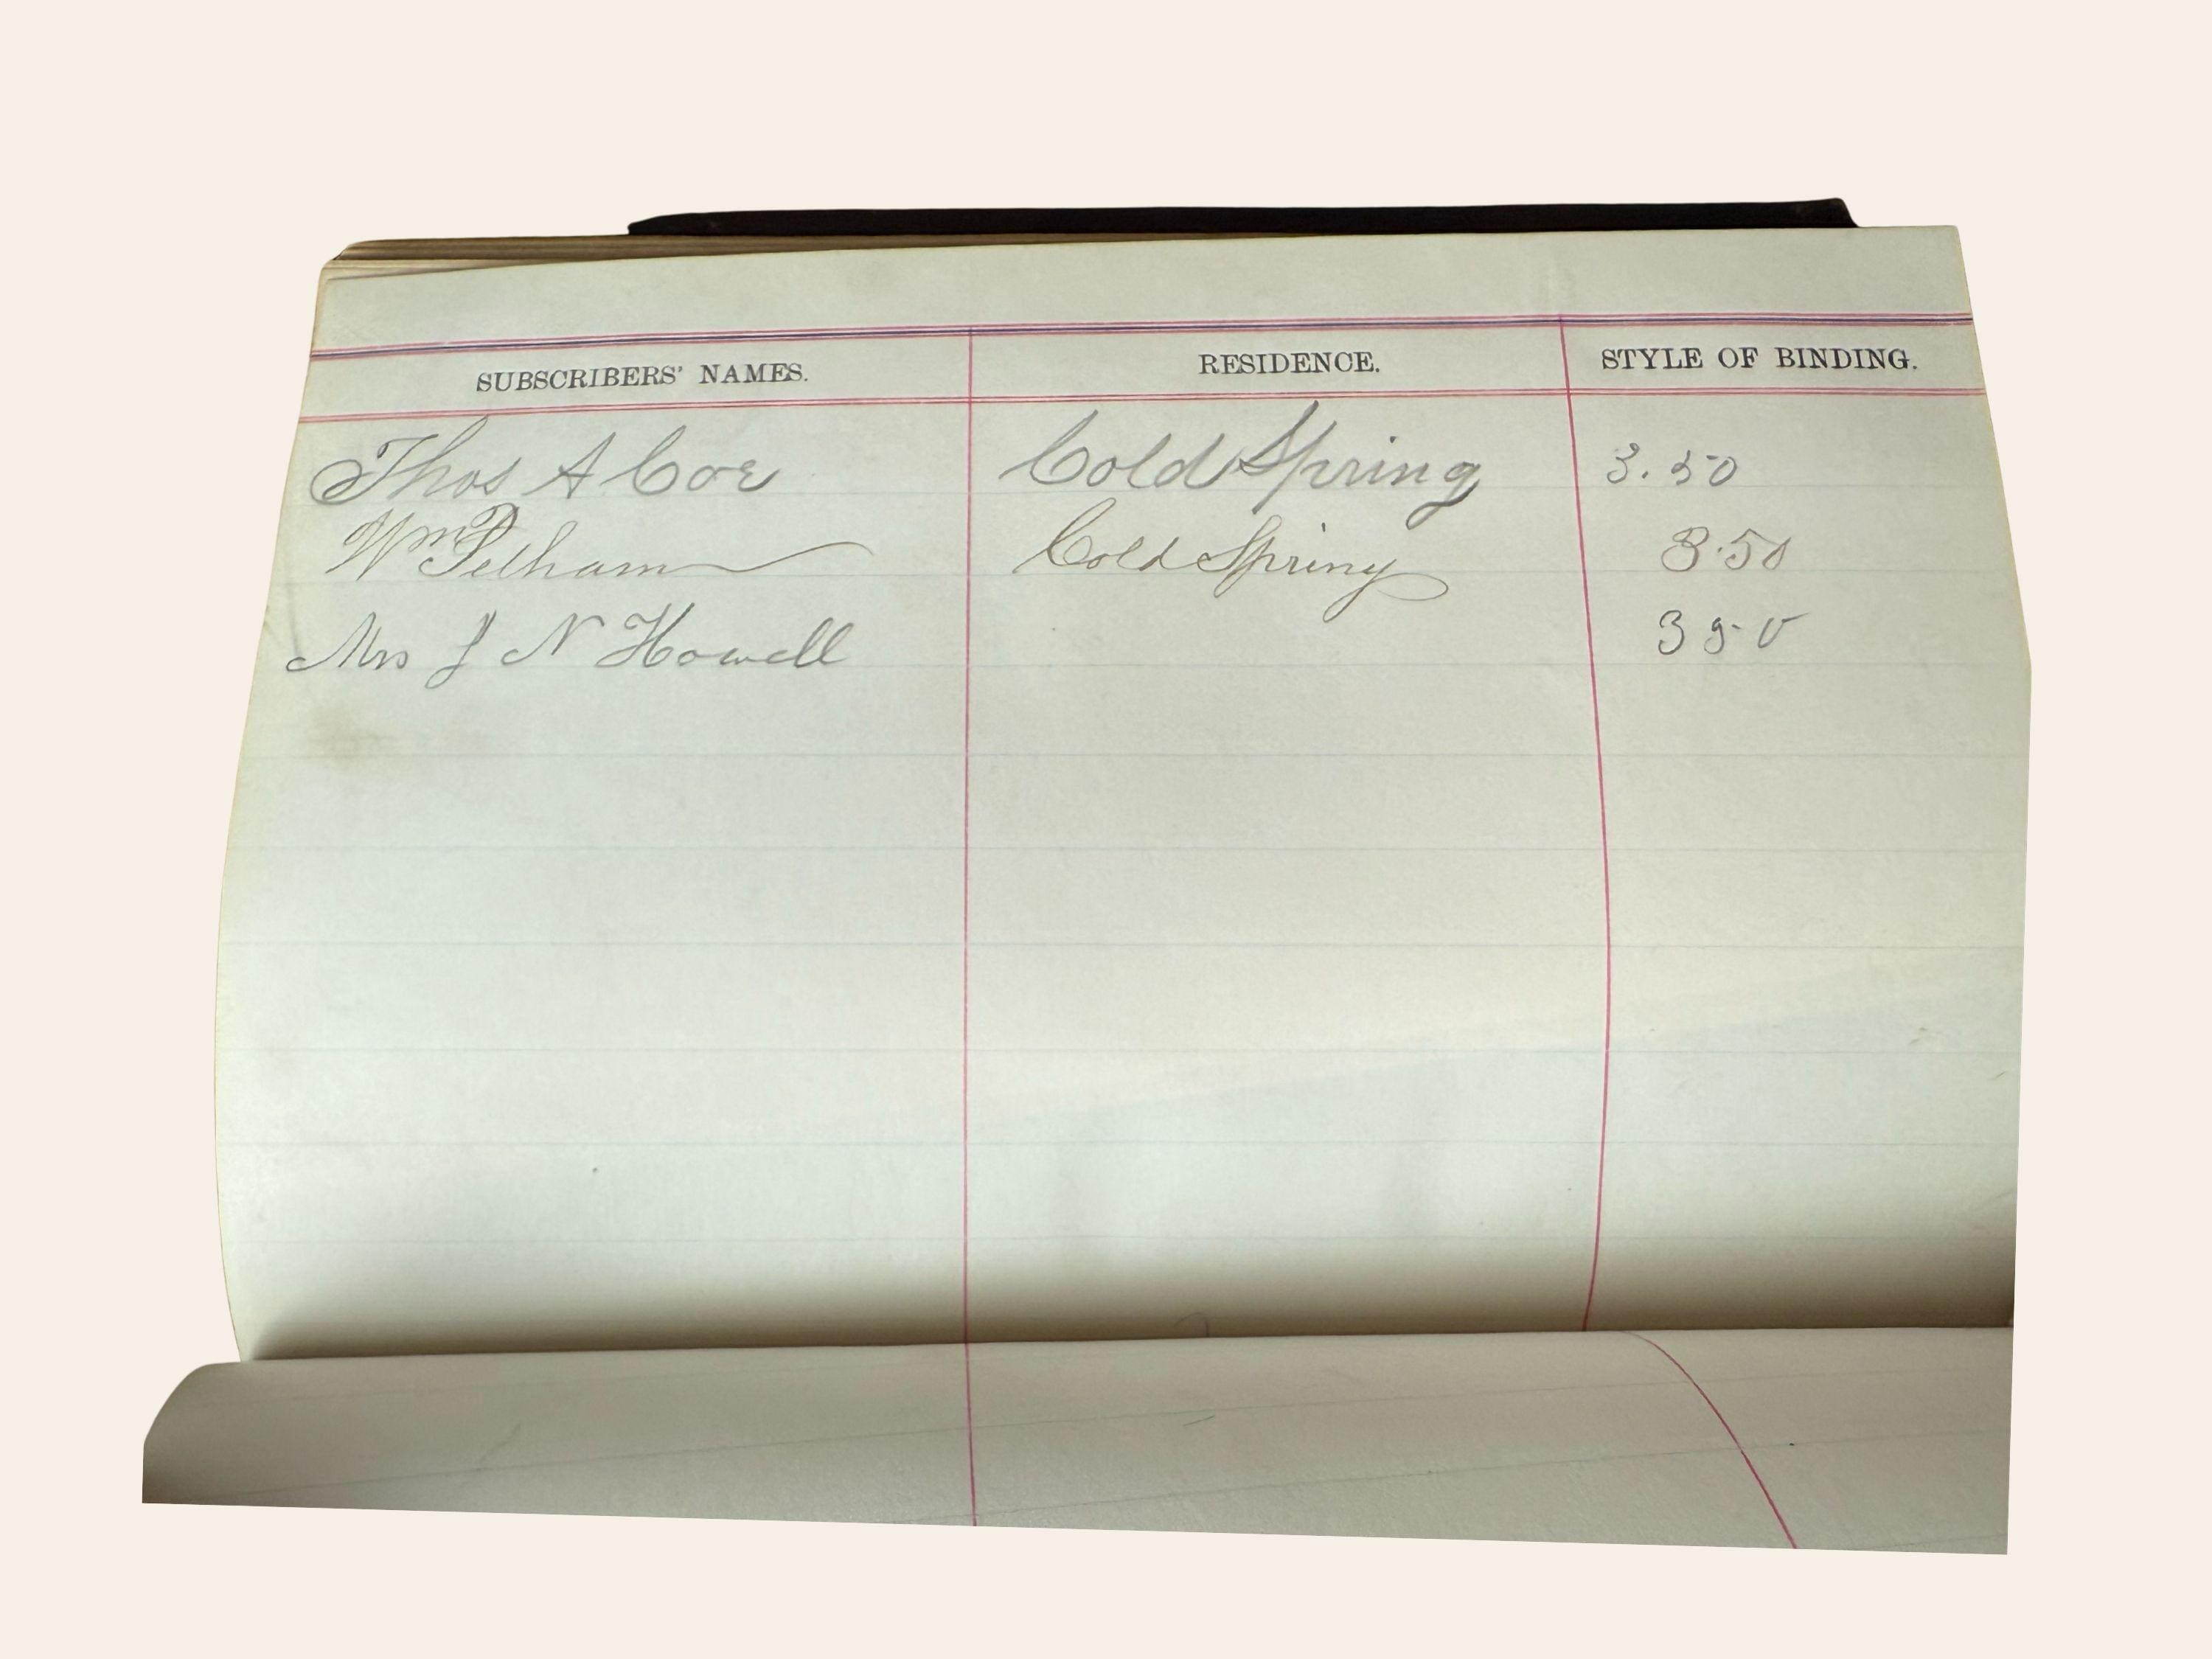 SUBSCRIBERS' NAMES. RESIDENCE. STYLE OF BINDING.
Thos A Coe Cold Spring 3.50
Wm Pelham Cold Spring 3.50
Mrs J N Howell 350